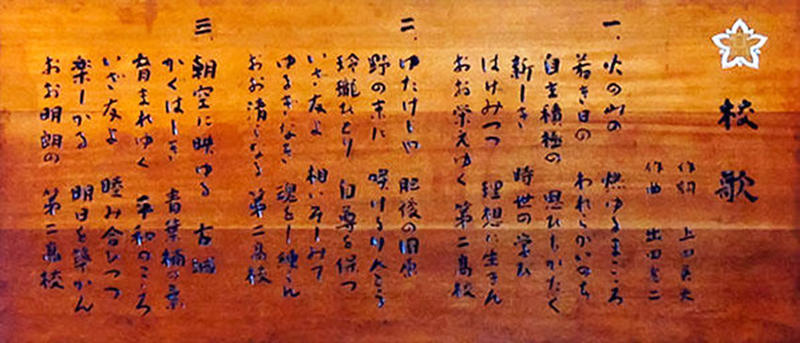 校歌
作詞 上田英夫
作曲 出田憲二
一、火の山の 燃ゆるまごころ
若き日の われらがいのち
自主積極の 思ひもかたく
新しき 時世の学び
はげみつつ 理想に生きん
おお栄えゆく 第二高校
二、ゆたけしや 肥後の国原
野の末に 咲けるりんどう
玲瓏ひとり 自尊を保つ
いざ友よ 相いそしみて
ゆるぎなき 魂をし練らん
おお清らなる 第二高校
三、朝空に映ゆる 古城
かぐはしき 青葉楠の葉
育まれゆく 平和のこころ
いざ友よ 睦み合ひつつ
楽しかる 明日を築かん
おお明朗の 第二高校